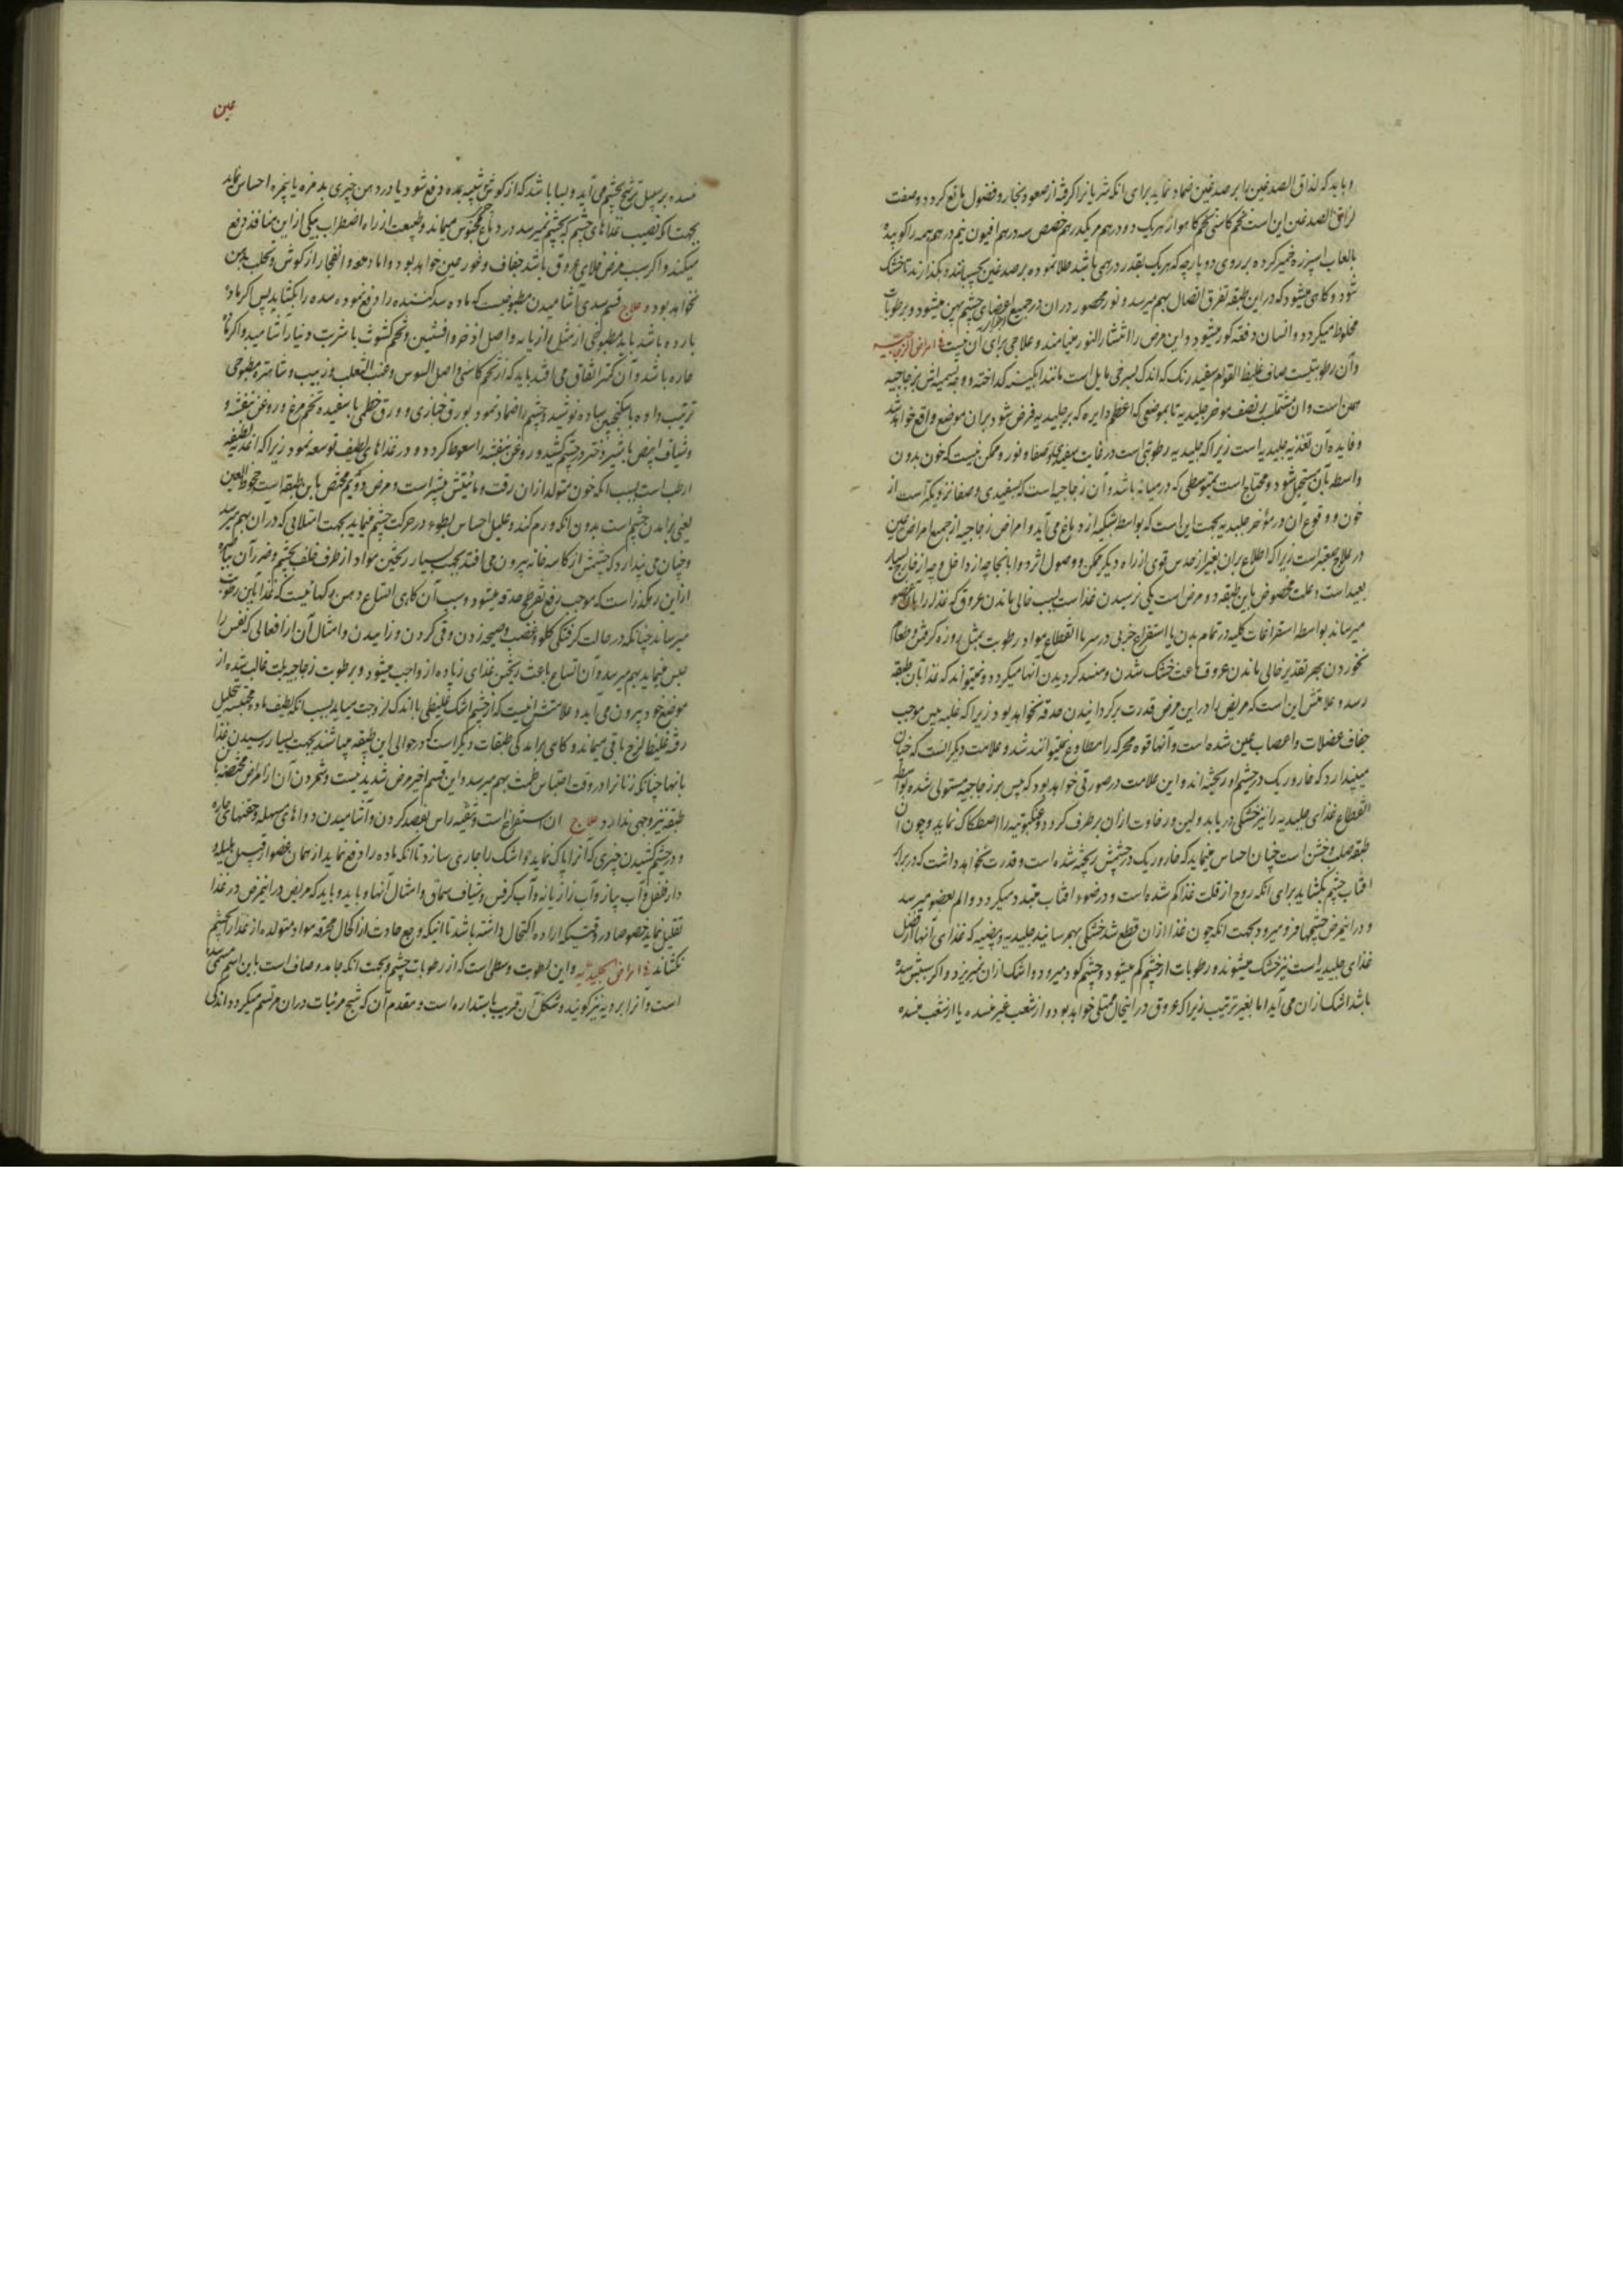 و باید که لذاق الصدغین را بر صدغین ضماد نماید برای انکه شریانرا کرفته از صعود بخار و فضول مانع کردد و صفت
لزاق الصدغین این است تخم کاسنی تخم کاهو از هر یک دو درهم مر یکدرهم حضض سه درهم افیون نیم درهم همه را کوبیده
بالعاب اسپرزه خمیر کرده بر روی دو پارچه که هر یک بقدر درهمی باشد طلا نموده بر صدغین بچسبانند و بگذارند تا خشک
شود و کاهی میشود که در این طبقه تفرق اتصال بهم میرسد و نور محصور در ان در جمیع اجزای چشم پهن میشود و برطوبات
مخلوط میکردد و انسان دفعة کور میشود و این مرض را انتشار النور مینامند و علاجی برای آن نیست امراض الزجاجیه
وآن رطوبتیست صاف غلیظ القوام سفید رنک که اندک بسرخی مایل است مانند ابکینه کداخته و وجه تسمیه اش بزجاجیه
همین است وان مشتمل بر نصف موخر جلیدیه تا بموضعی که اعظم دایره که بر جلیدیه فرض شود بران موضع واقع خواهد شد
و فایده آن تغذیه جلیدیه است زیرا که جلیدیه رطوبتی است در غایت سفیدی و صفا و نور و ممکن نیست که خون بدون
واسطه بآن مستحیل شود و محتاج است بمتوسطی که در میانه باشد و آن زجاجیه است که بسفیدی و صفا نزدیکتر است از
خون و وقوع ان در مؤخر جلیدیه بجهت این است که بواسطه شبکیه از دماغ می آید و امراض زجاجیه از جمیع امراض عین
در علاج صعبتر است زیرا که اطلاع بران بغیر از حدس قوی از راه دیکر ممکن و وصول اثر دوا بانجا چه از داخل و چه از خارج بسیار
بعید است و علت مخصوص باین طبقه دو مرض است یکی نرسیدن غذا است بسبب خالی ماندن عروق که غذا را بآن عضو
میرساند بواسطه استفراغات کلیه در تمام بدن یا استفراغ جزیی در سر یا انقطاع مواد رطوبت بمثل روزه کرفتن و طعام
نخوردن بهر تقدیر خالی ماندن عروق باعث خشک شدن و منسد کردیدن انها میکردد و نمیتواند که غذا بآن طبقه
رسد و علامتش این است که مریض را در این مرض قدرت بر کردانیدن حدقه نخواهد بود زیرا که غلبه یبس موجب
جفاف عضلات و اعصاب عین شده است و آنها قوه محرکه را مطاوع نمیتوانند شد و علامت دیکر انست که چنان
میپندارد که خار و ریک در چشم او ریخته اند و این علامت در صورتی خواهد بود که یبس بر زجاجیه مستولی شده بواسطه
انقطاع غذای جلیدیه را نیز خشکی دریابد و لین و رخاوت ازان برطرف کردد و عنکبوتیه را اصطکاک نماید و چون آن
طبقه صلب و خشن است چنان احساس مینماید که خار و ریک در چشمش ریخته شده است و قدرت نخواهد داشت که در برابر
افتاب چشم بکشاید برای انکه روح از قلت غذا کم شده است و در ضوء افتاب متبدد میکردد و الم بعضو میرسد
و در اینمرض چشمها فرو میرود بجهت انکه چون غذا ازان قطع شد خشکی بهم رسانید جلیدیه و بیضیه که غذای آنها از فضل
غذای جلیدیه است نیز خشک میشوند و رطوبات از چشم کم میشود و چشم کود میرود و اشک ازان نمیریزد و اکر سببش سده
باشد اشک ازان می آید اما بغیر ترتیب زیرا که عروق در اینحال ممتلی خواهد بود و از شعب غیر منسده یا از شعب منسده
عین
منسده بر سبیل ترشح بچشم می آید و بسا باشد که از کوش شبیه بمده دفع شود یا در دهن چیزی بد مزه یا بخره احساس نماید
بجهت انکه نصیب غذاهای چشم که بچشم نمیرسد در دماغ محبوس میماند و طبیعت از راه اضطراب بیکی از این منافذ دفع
میکند و اکر سبب مرض خلای عروق باشد جفاف و غور عین خواهد بود و اما دمعه و انفجار از کوش و تحلب بدهن
نخواهد بود و علاج قسم سدی اشامیدن مطبوخیست که ماده سد کننده را دفع نموده سده را بکشاید پس اکر ماده
بارده باشد باید مطبوخی از مثل رازیانه و اصل اذخر و افسنتین و تخم کشوث با شربت دینار آشامید و اکر ماده
حاره باشد و آن کمتر اتفاق می افتد باید که از تخم کاسنی و اصل السوس و عنب الثعلب و زبیب و شاهتره مطبوخی
ترتیب داده با سکنجبین ساده نوشید و چشم را ضماد نمود بورق خبازی و ورق خطمی با سفیده تخم مرغ و روغن بنفشه و
وشیاف ابیض با شیر دختر در چشم کشید و روغن بنفشه را سعوط کردد و در غذاهای لطیف توسعه نمود زیرا که اغذیه لطیفه
ارطب است بسبب انکه خون متولد ازان رقت و مائیتش بیشتر است و مرض دویم مختص باین طبقه است جحوظ العین
یعنی برامدن چشم است بدون انکه ورم کند و علیل احساس بطوء در حرکت چشم مینماید بجهت امتلایی که دران بهم میرسد
و چنان می پندارد که چشمش از کاسه خانه بیرون می افتد بجهت بسیار ریختن مواد از طرف خلف بچشم و ضرر آن بنکاه
از این رهکذر است که موجب رفع تفرطح حدقه میشود و سبب آن کاهی اتساع دهن رکهائیست که غذا باین رطوبت
میرساند چنانکه در حالت کرفتکی کلو و غضب و صیحه زدن و قی کردن و زاییدن و امثال آن از افعالی که نفس را
حبس مینماید بهم میرسد و آن اتساع باعث ریختن غذای زیاده از واجب میشود و برطوبت زجاجیه بلت غالب شده از
موضع خود بیرون می آید و علامتش انیست که از چشم اشک غلیظی با اندک لزوجت میباید بسبب انکه لطیف ماده محتبسه تحلیل
رفته غلیظ لزج باقی میماند و کاهی برامدکی طبقات دیکر است که در حوالی این طبقه میباشند بجهت بسیار رسیدن غذا
بانها چنانکه زنانرا در وقت احتباس طمث بهم میرسد و این قسم اخیر مرض شدید نیست و شمردن آن از امراض مختصه باین
طبقه نیز وجهی ندارد و علاج ان استفراغ است و تنقیه راس بفصد کردن و آشامیدن دواهای مسهله و حقنهای حاره
و در چشم کشیدن چیزی که انرا پاک نماید و اشک را جاری سازد تا انکه ماده را دفع نماید از همان عضو از قبیل هلیله و
دارفلفل و آب پیاز و آب رازیانه و آب کرفس و شیاف سماق و امثال آنها و باید و باید که مریض در اینمرض در غذا
تقلیل نماید خصوصا در وقتیکه اراده اکتحال داشته باشد تا اینکه وجع حادث از اکحال محرقه مواد متولده از غذا را بچشم
نکشاند امراض الجلیدیه و این رطوبت وسطی است که از رطوبات چشم و بجهت انکه جامد و صاف است باین اسم مسمی شده
است و انرا بردیه نیز کویند و شکل آن قریب باستداره است و مقدم آن که شبح مرئیات دران مرتسم میکردد اندکی